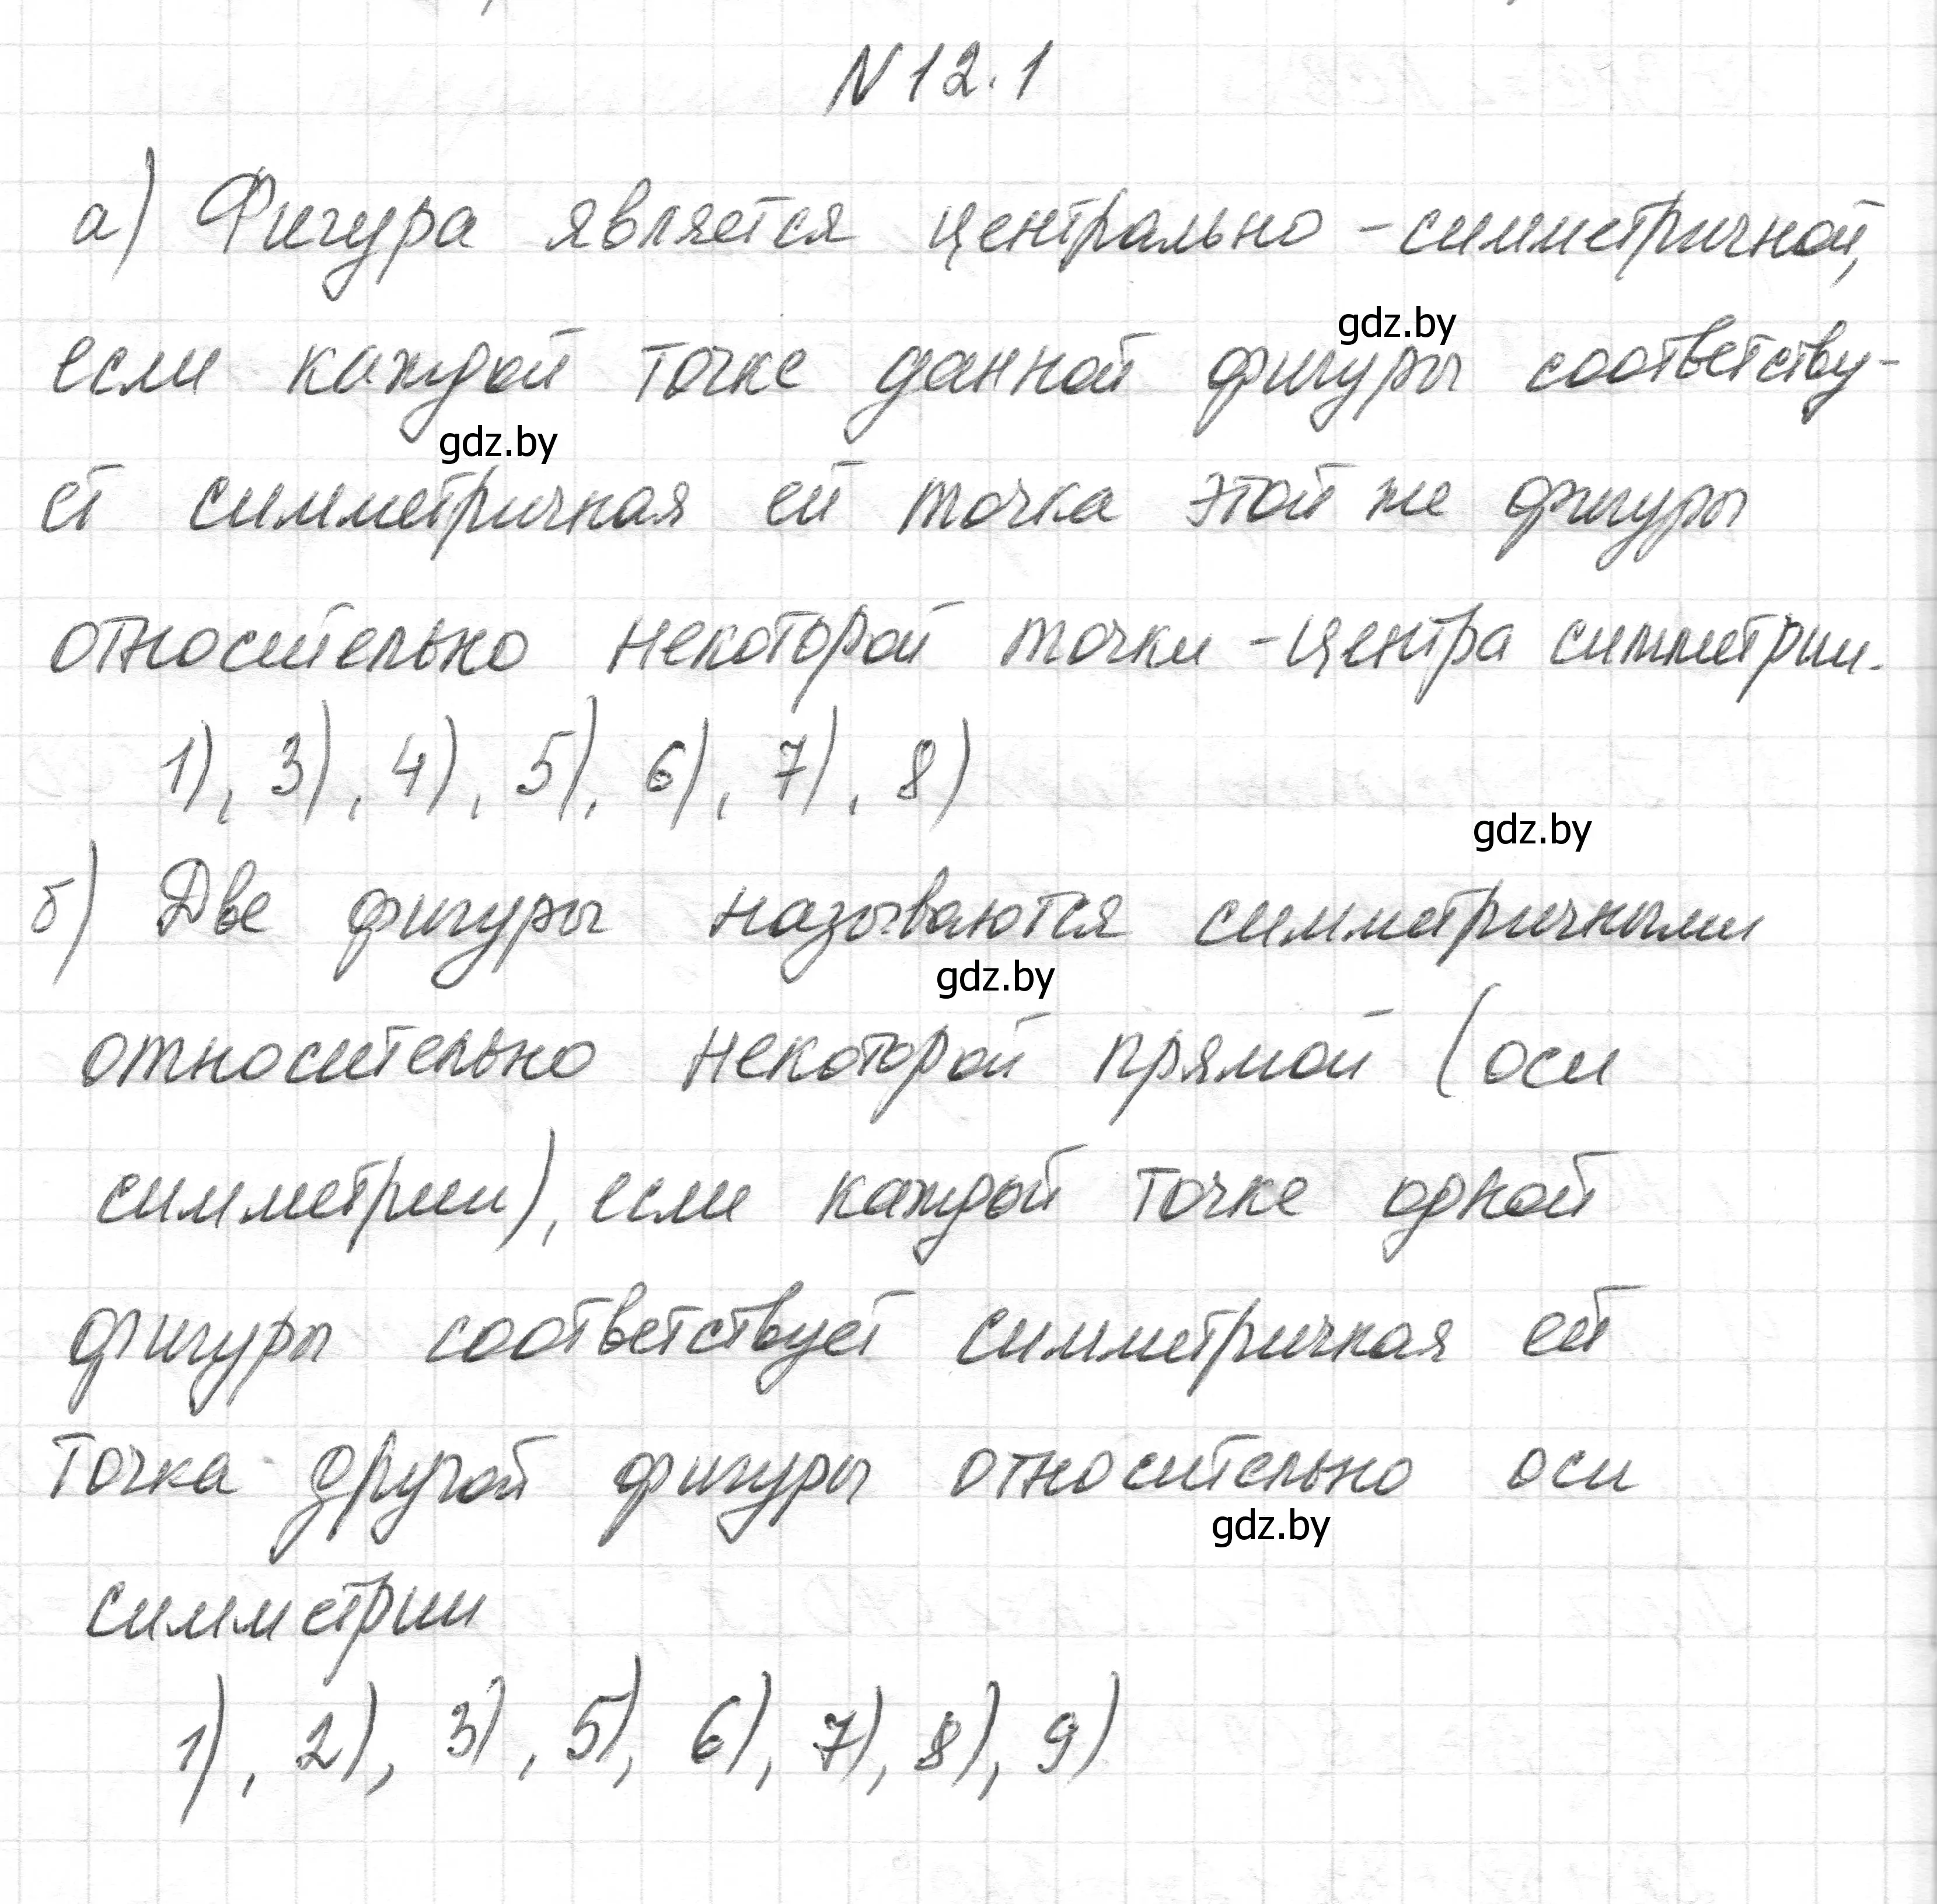 N 12.1
а) Фигура является центрально-симметричной,
gdz.by
если каждой точке данной фигуры соответству-
gdz.by
ет симметричная ей точка этой же фигуры
относительно некоторой точки - центра симметрии.
1), 3), 4), 5), 6), 7), 8)
gdz.by
б) Две фигуры называются симметричными
gdz.by
относительно некоторой прямой (оси
симметрии), если каждой точке одной
фигуры соответствует симметричная ей
точка другой фигуры относительно оси
gdz.by
симметрии
1), 2), 3), 5), 6), 7), 8), 9)